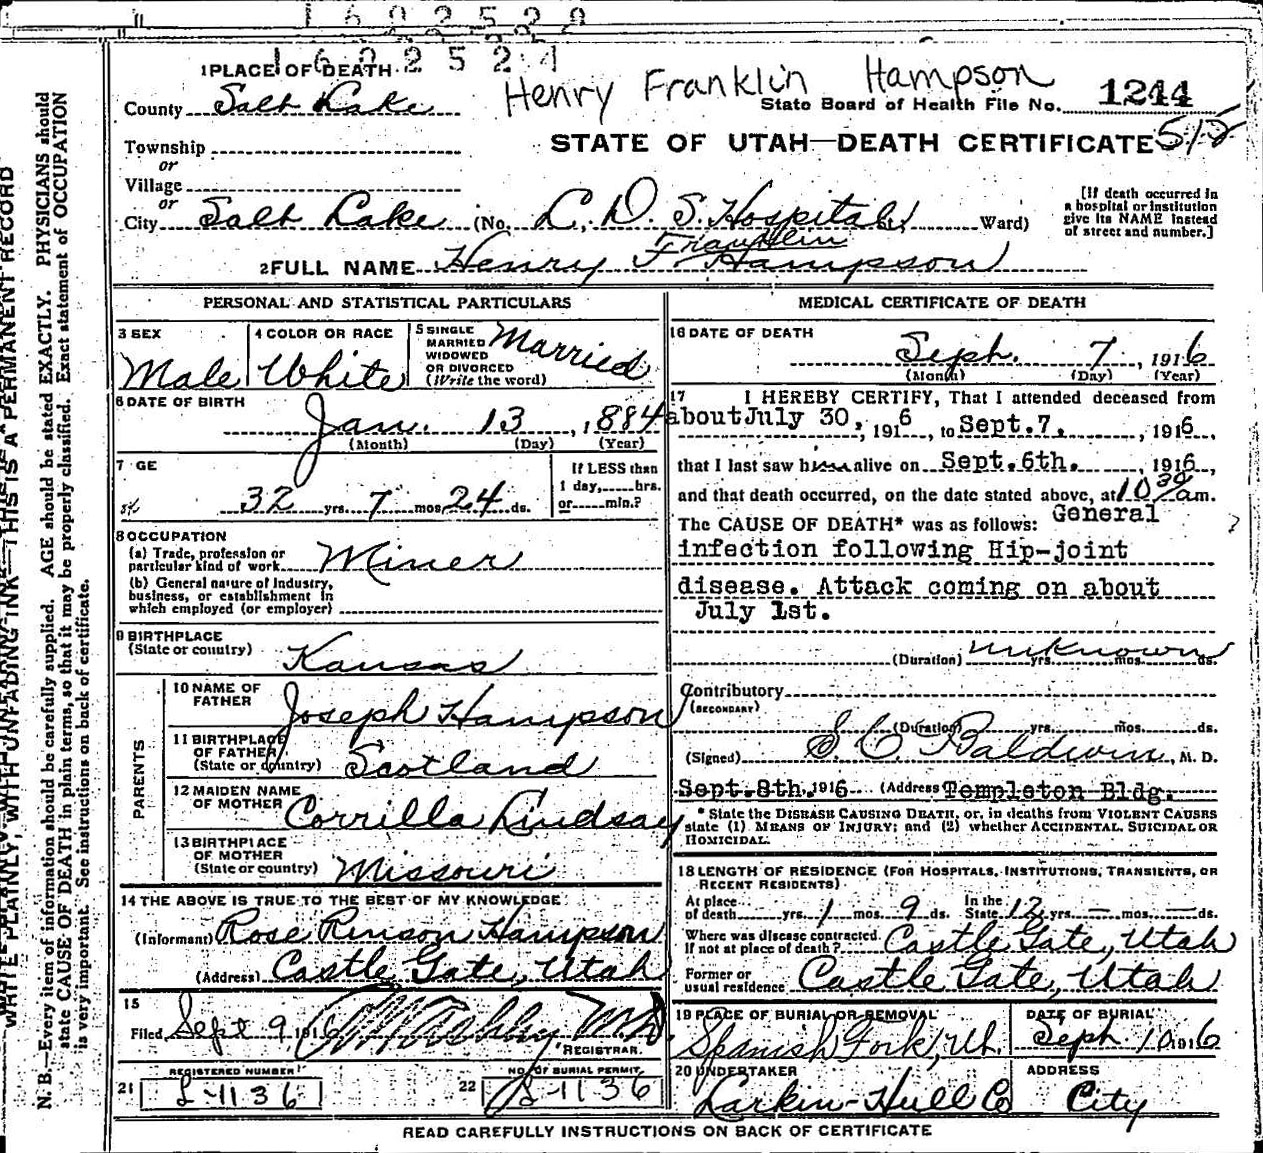 1602529
1602524
Henry Franklin Hampson
1 PLACE OF DEATH
County Salt Lake
State Board of Health File No. 1244
STATE OF UTAH—DEATH CERTIFICATE 512
Township
or
Village
or
City Salt Lake (No. L. D. S. Hospital St; Ward)
[If death occurred in
a hospital or institution
give its NAME instead
of street and number.]
Franklin
2 FULL NAME Henry F. Hampson
PERSONAL AND STATISTICAL PARTICULARS
3 SEX
Male
4 COLOR OR RACE
White
5 SINGLE
MARRIED
WIDOWED
OR DIVORCED
(Write the word)
Married
6 DATE OF BIRTH
Jan. 13, 1884
(Month) (Day) (Year)
7 GE
32 yrs. 7 mos. 24 ds.
If LESS than
1 day,......hrs.
or......min.?
8 OCCUPATION
(a) Trade, profession or
particular kind of work Miner
(b) General nature of Industry,
business, or establishment in
which employed (or employer)
9 BIRTHPLACE
(State or country) Kansas
PARENTS
10 NAME OF
FATHER Joseph Hampson
11 BIRTHPLACE
OF FATHER
(State or country) Scotland
12 MAIDEN NAME
OF MOTHER Corrilla Lindsay
13 BIRTHPLACE
OF MOTHER
(State or country) Missouri
14 THE ABOVE IS TRUE TO THE BEST OF MY KNOWLEDGE
(Informant) Rose Rinson Hampson
(Address) Castle Gate, Utah
15
Filed Sept 9, 1916 M.D.
REGISTRAR.
21 REGISTERED NUMBER
L-1136
22 NO. OF BURIAL PERMIT
B-1136
MEDICAL CERTIFICATE OF DEATH
16 DATE OF DEATH
Seph. 7, 1916
(Month) (Day) (Year)
17 I HEREBY CERTIFY, That I attended deceased from
about July 30, 1916, to Sept. 7, 1916,
that I last saw him alive on Sept. 6th. 1916,
and that death occurred, on the date stated above, at 10 30 am.
The CAUSE OF DEATH* was as follows: General
infection following Hip-joint
disease. Attack coming on about
July 1st.
(Duration) unknown yrs. mos. ds.
Contributory
(SECONDARY)
(Duration) yrs. mos. ds.
(Signed) S. C. Baldwin, M. D.
Sept. 8th. 1916 (Address) Templeton Bldg.
* State the DISEASE CAUSING DEATH, or, in deaths from VIOLENT CAUSES
state (1) MEANS OF INJURY; and (2) whether ACCIDENTAL, SUICIDAL OR
HOMICIDAL.
18 LENGTH OF RESIDENCE (FOR HOSPITALS, INSTITUTIONS, TRANSIENTS, OR
RECENT RESIDENTS)
At place
of death yrs. 1 mos. 9 ds. In the
State 12 yrs. — mos. — ds.
Where was disease contracted
If not at place of death? Castle Gate, Utah
Former or
usual residence Castle Gate, Utah
19 PLACE OF BURIAL OR REMOVAL
Spanish Fork, Ut.
DATE OF BURIAL
Seph. 10 1916
20 UNDERTAKER
Larkin-Hull Co
ADDRESS
City
READ CAREFULLY INSTRUCTIONS ON BACK OF CERTIFICATE
WRITE PLAINLY, WITH UNFADING INK—THIS IS A PERMANENT RECORD
N. B.—Every item of information should be carefully supplied. AGE should be stated EXACTLY. PHYSICIANS should
state CAUSE OF DEATH in plain terms, so that it may be properly classified. Exact statement of OCCUPATION
is very important. See instructions on back of certificate.